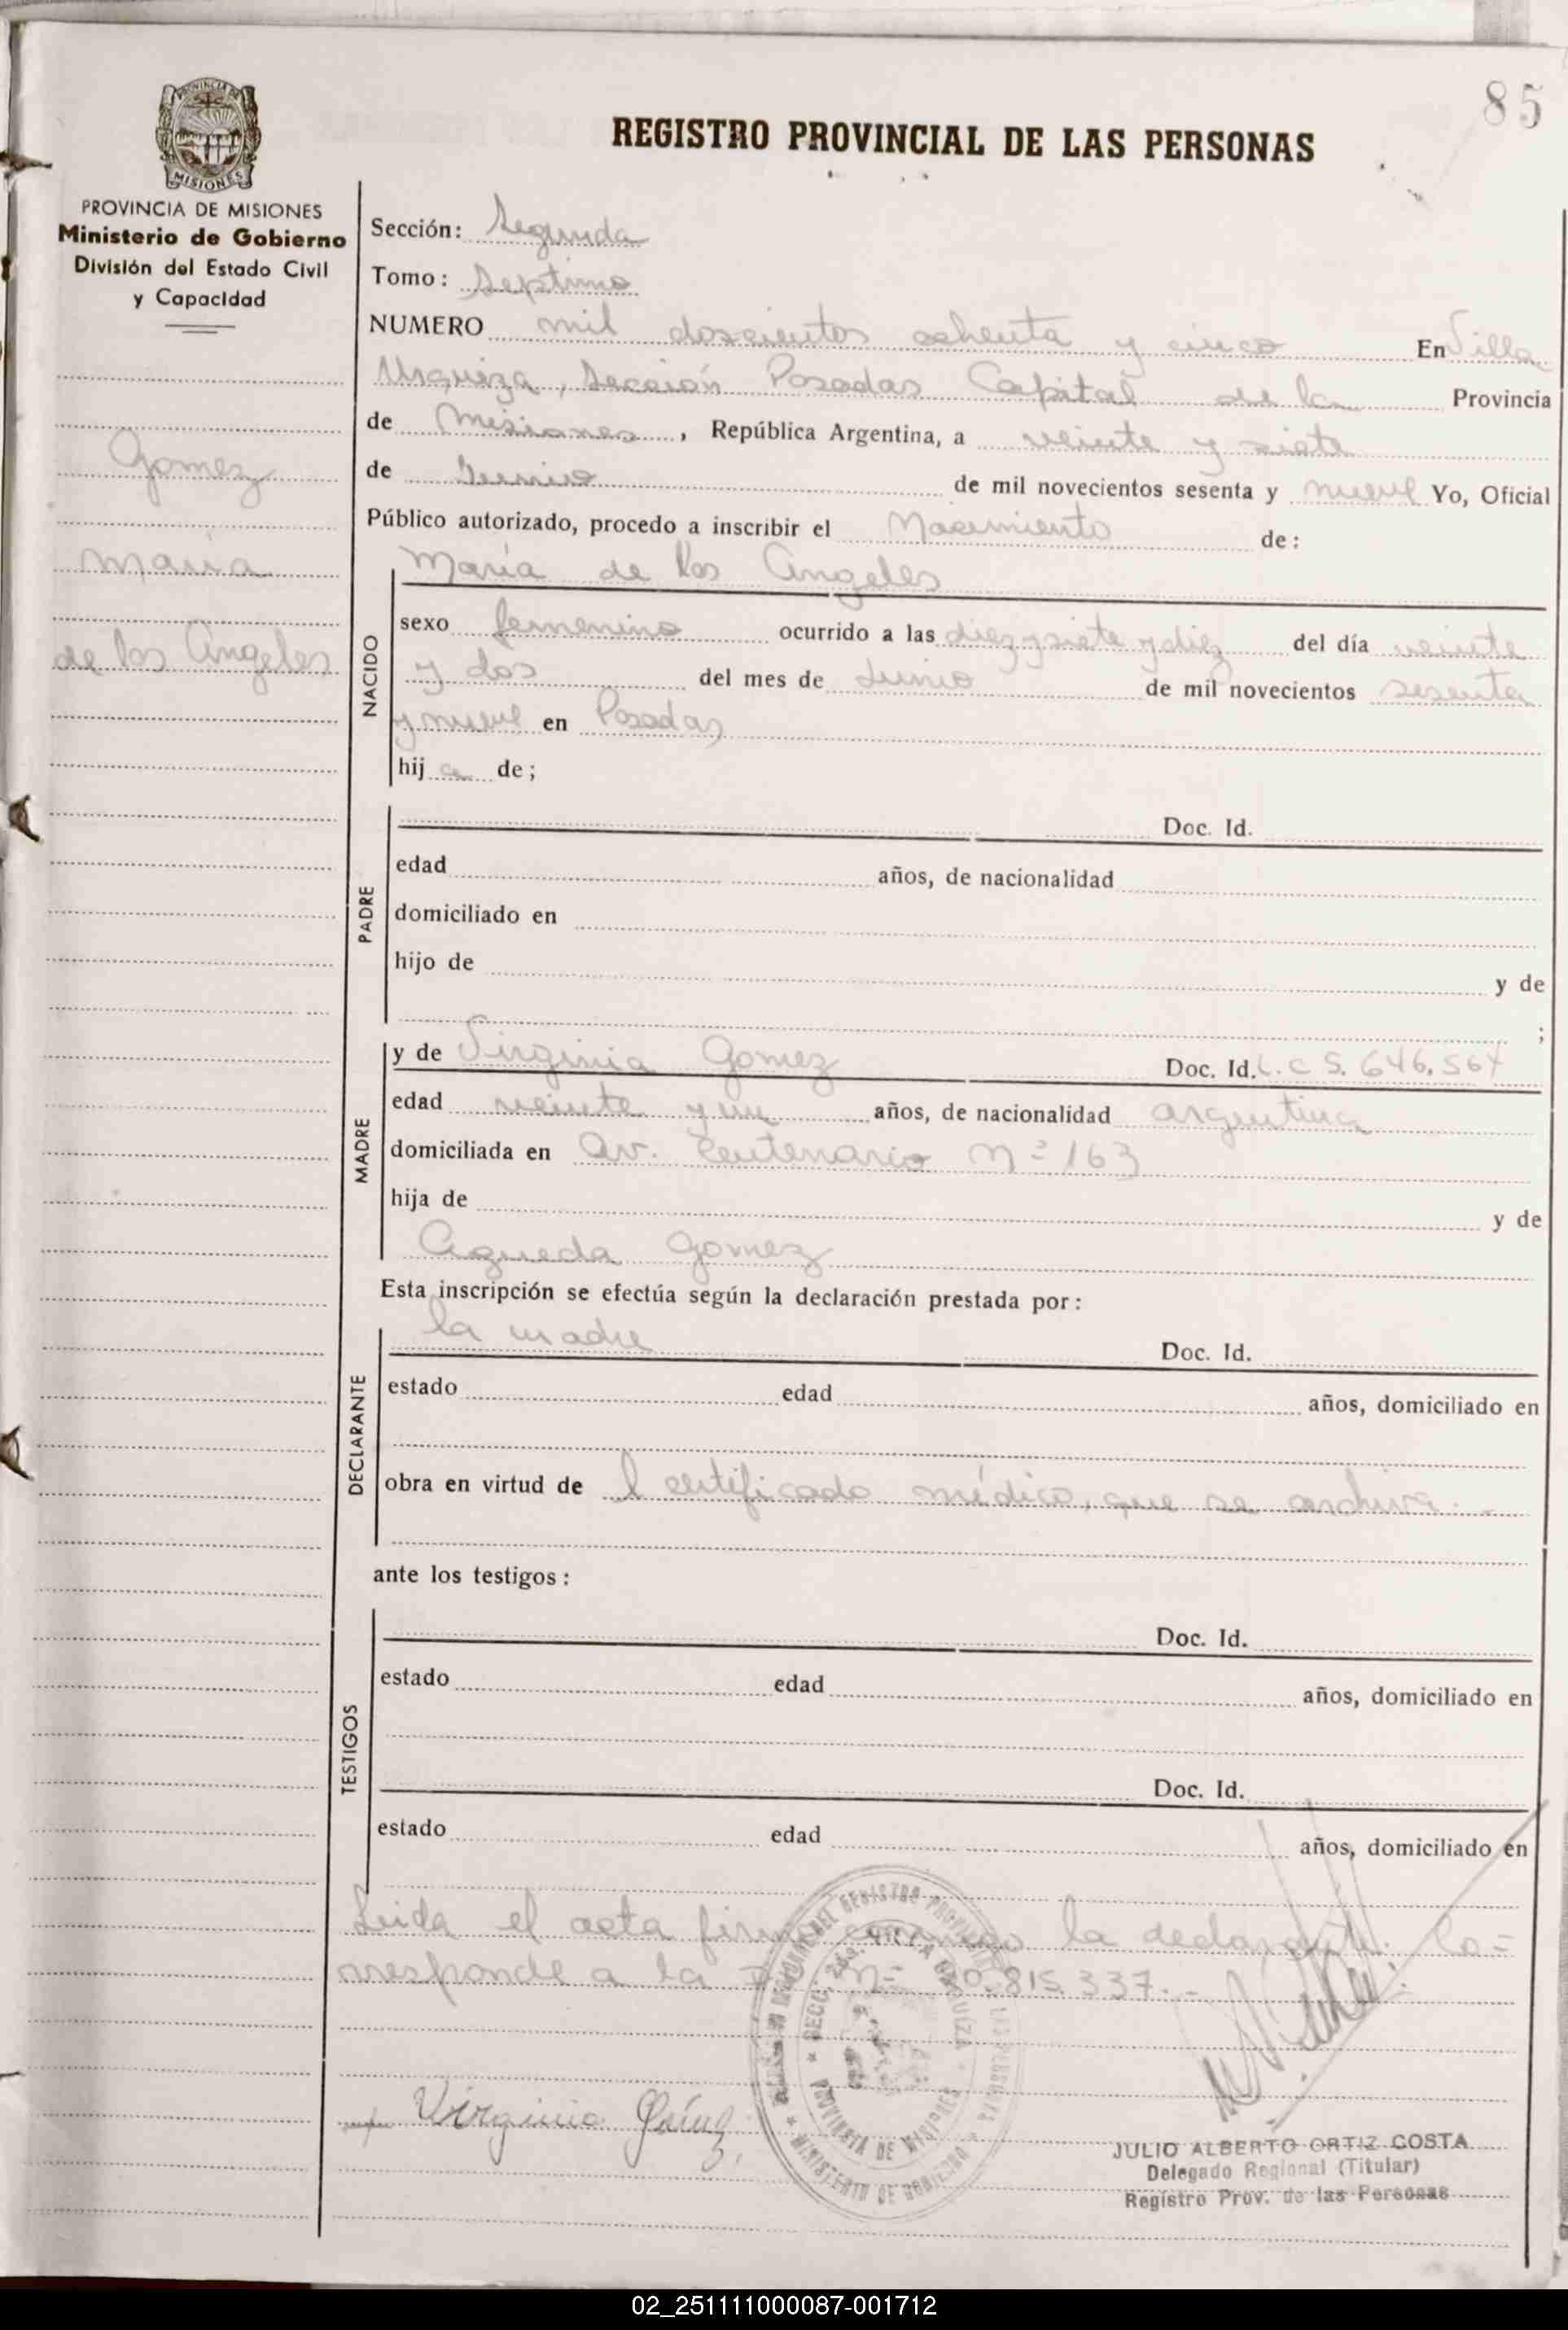 85
REGISTRO PROVINCIAL DE LAS PERSONAS
PROVINCIA DE
MISIONES
PROVINCIA DE MISIONES
Ministerio de Gobierno
División del Estado Civil
y Capacidad
Gomez
Maria
de los Angeles
Sección: Segunda
Tomo: Septimo
NUMERO mil doscientos ochenta y cinco En Villa
Urquiza, Sección Posadas Capital de la Provincia
de Misiones, República Argentina, a veinte y siete
de Junio de mil novecientos sesenta y nueve Yo, Oficial
Público autorizado, procedo a inscribir el Nacimiento de:
María de los Angeles
NACIDO
sexo femenino ocurrido a las diez y siete y diez del día veinte
y dos del mes de Junio de mil novecientos sesenta
y nueve en Posadas
hij a de;
PADRE
Doc. Id.
edad años, de nacionalidad
domiciliado en
hijo de y de
;
MADRE
y de Virginia Gomez Doc. Id. L.C 5.646.564
edad veinte y un años, de nacionalidad argentina
domiciliada en Av. Centenario Nº 163
hija de y de
Agueda Gomez
Esta inscripción se efectúa según la declaración prestada por:
DECLARANTE
la madre Doc. Id.
estado edad años, domiciliado en
obra en virtud de l certificado médico, que se archiva.-
ante los testigos:
TESTIGOS
Doc. Id.
estado edad años, domiciliado en
Doc. Id.
estado edad años, domiciliado en
Leida el acta firma conmigo la declarante. Co=
rresponde a la Nº 20.815.337.-
Virginia
DEL REGISTRO PROVINCIAL DE LAS PERSONAS
SECC. 2da. VILLA URQUIZA
PROVINCIA DE MISIONES
MINISTERIO DE GOBIERNO
JULIO ALBERTO ORTIZ COSTA
Delegado Regional (Titular)
Registro Prov. de las Personas
02_251111000087-001712